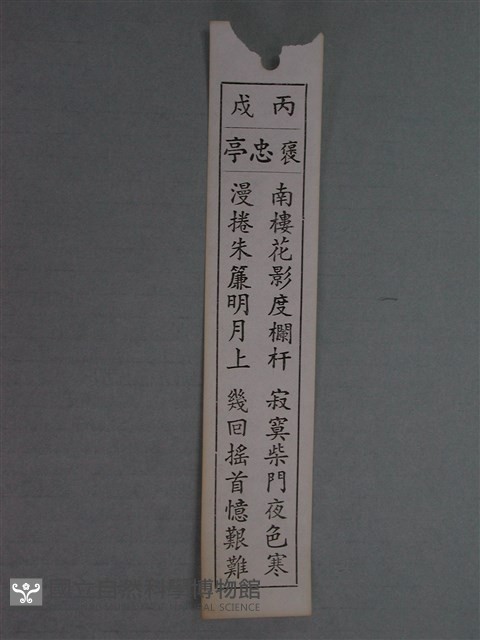 丙戌
褒忠亭
南樓花影度欄杆 寂寞柴門夜色寒
漫捲朱簾明月上 幾回搖首憶艱難
立自然科學博物館
AL SCIENCE